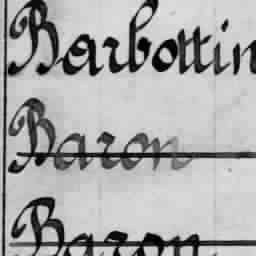 Barbottin
Baron
Baron